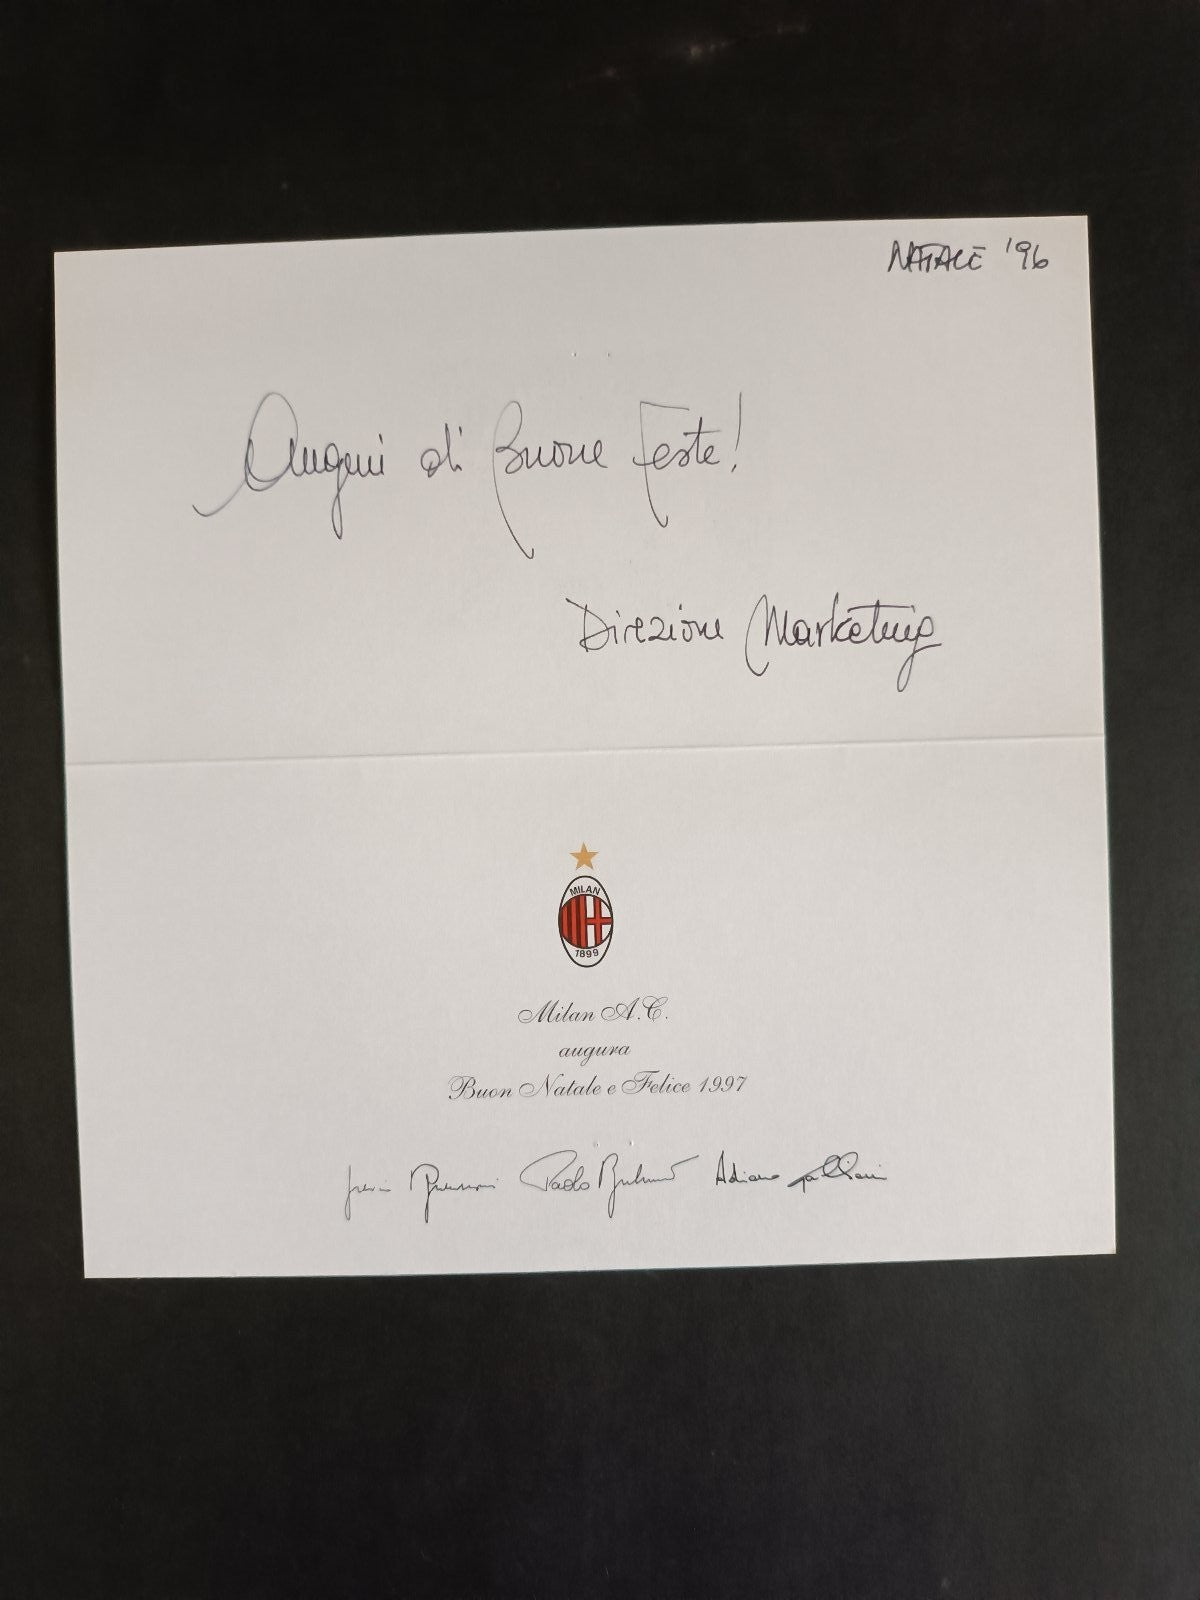 NATALE '96
Auguri di Buone Feste!
Direzione Marketing
MILAN
1899
Milan A.C.
augura
Buon Natale e Felice 1997
Paolo Berlusconi Adriano Galliani